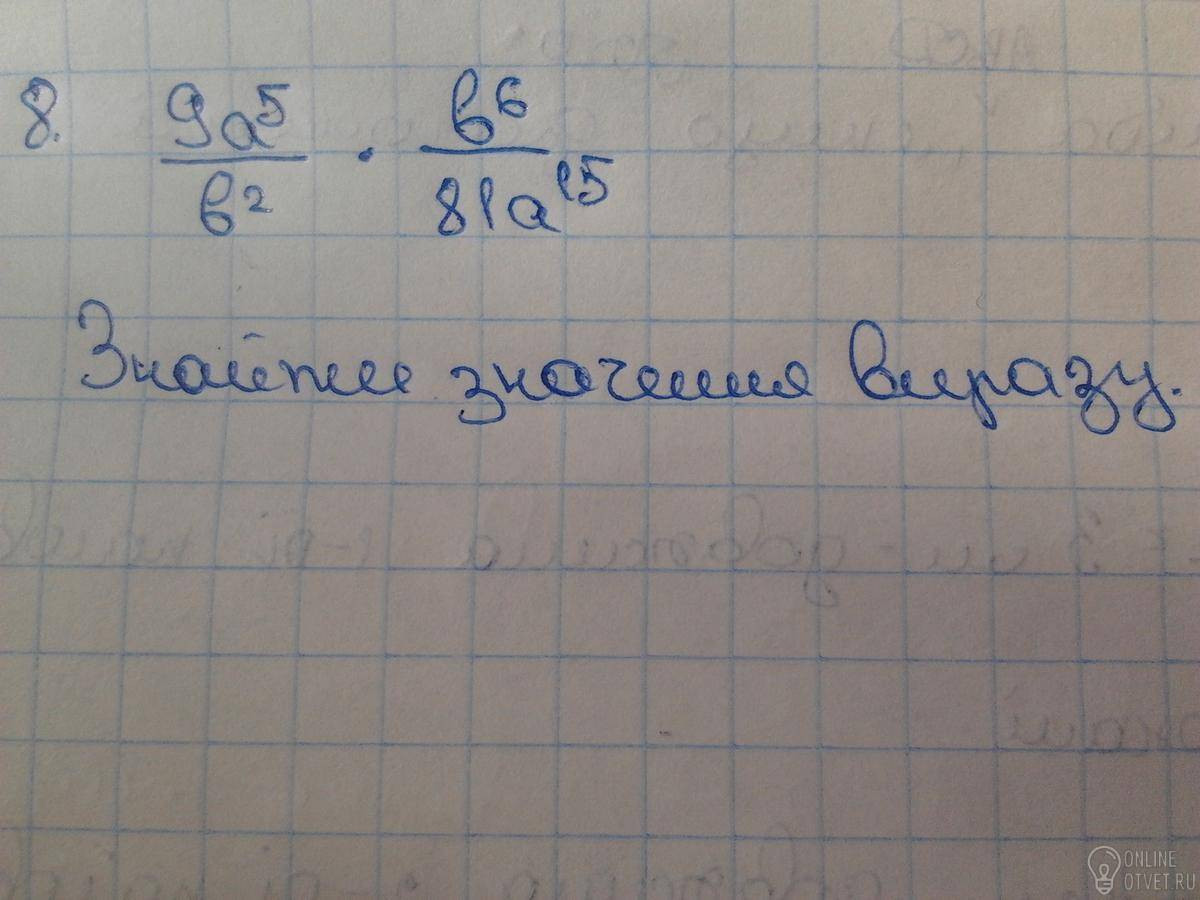 8. 9a⁵/b² · b⁶/81a¹⁵
Знайти значення виразу.
ONLINE
OTVET.RU